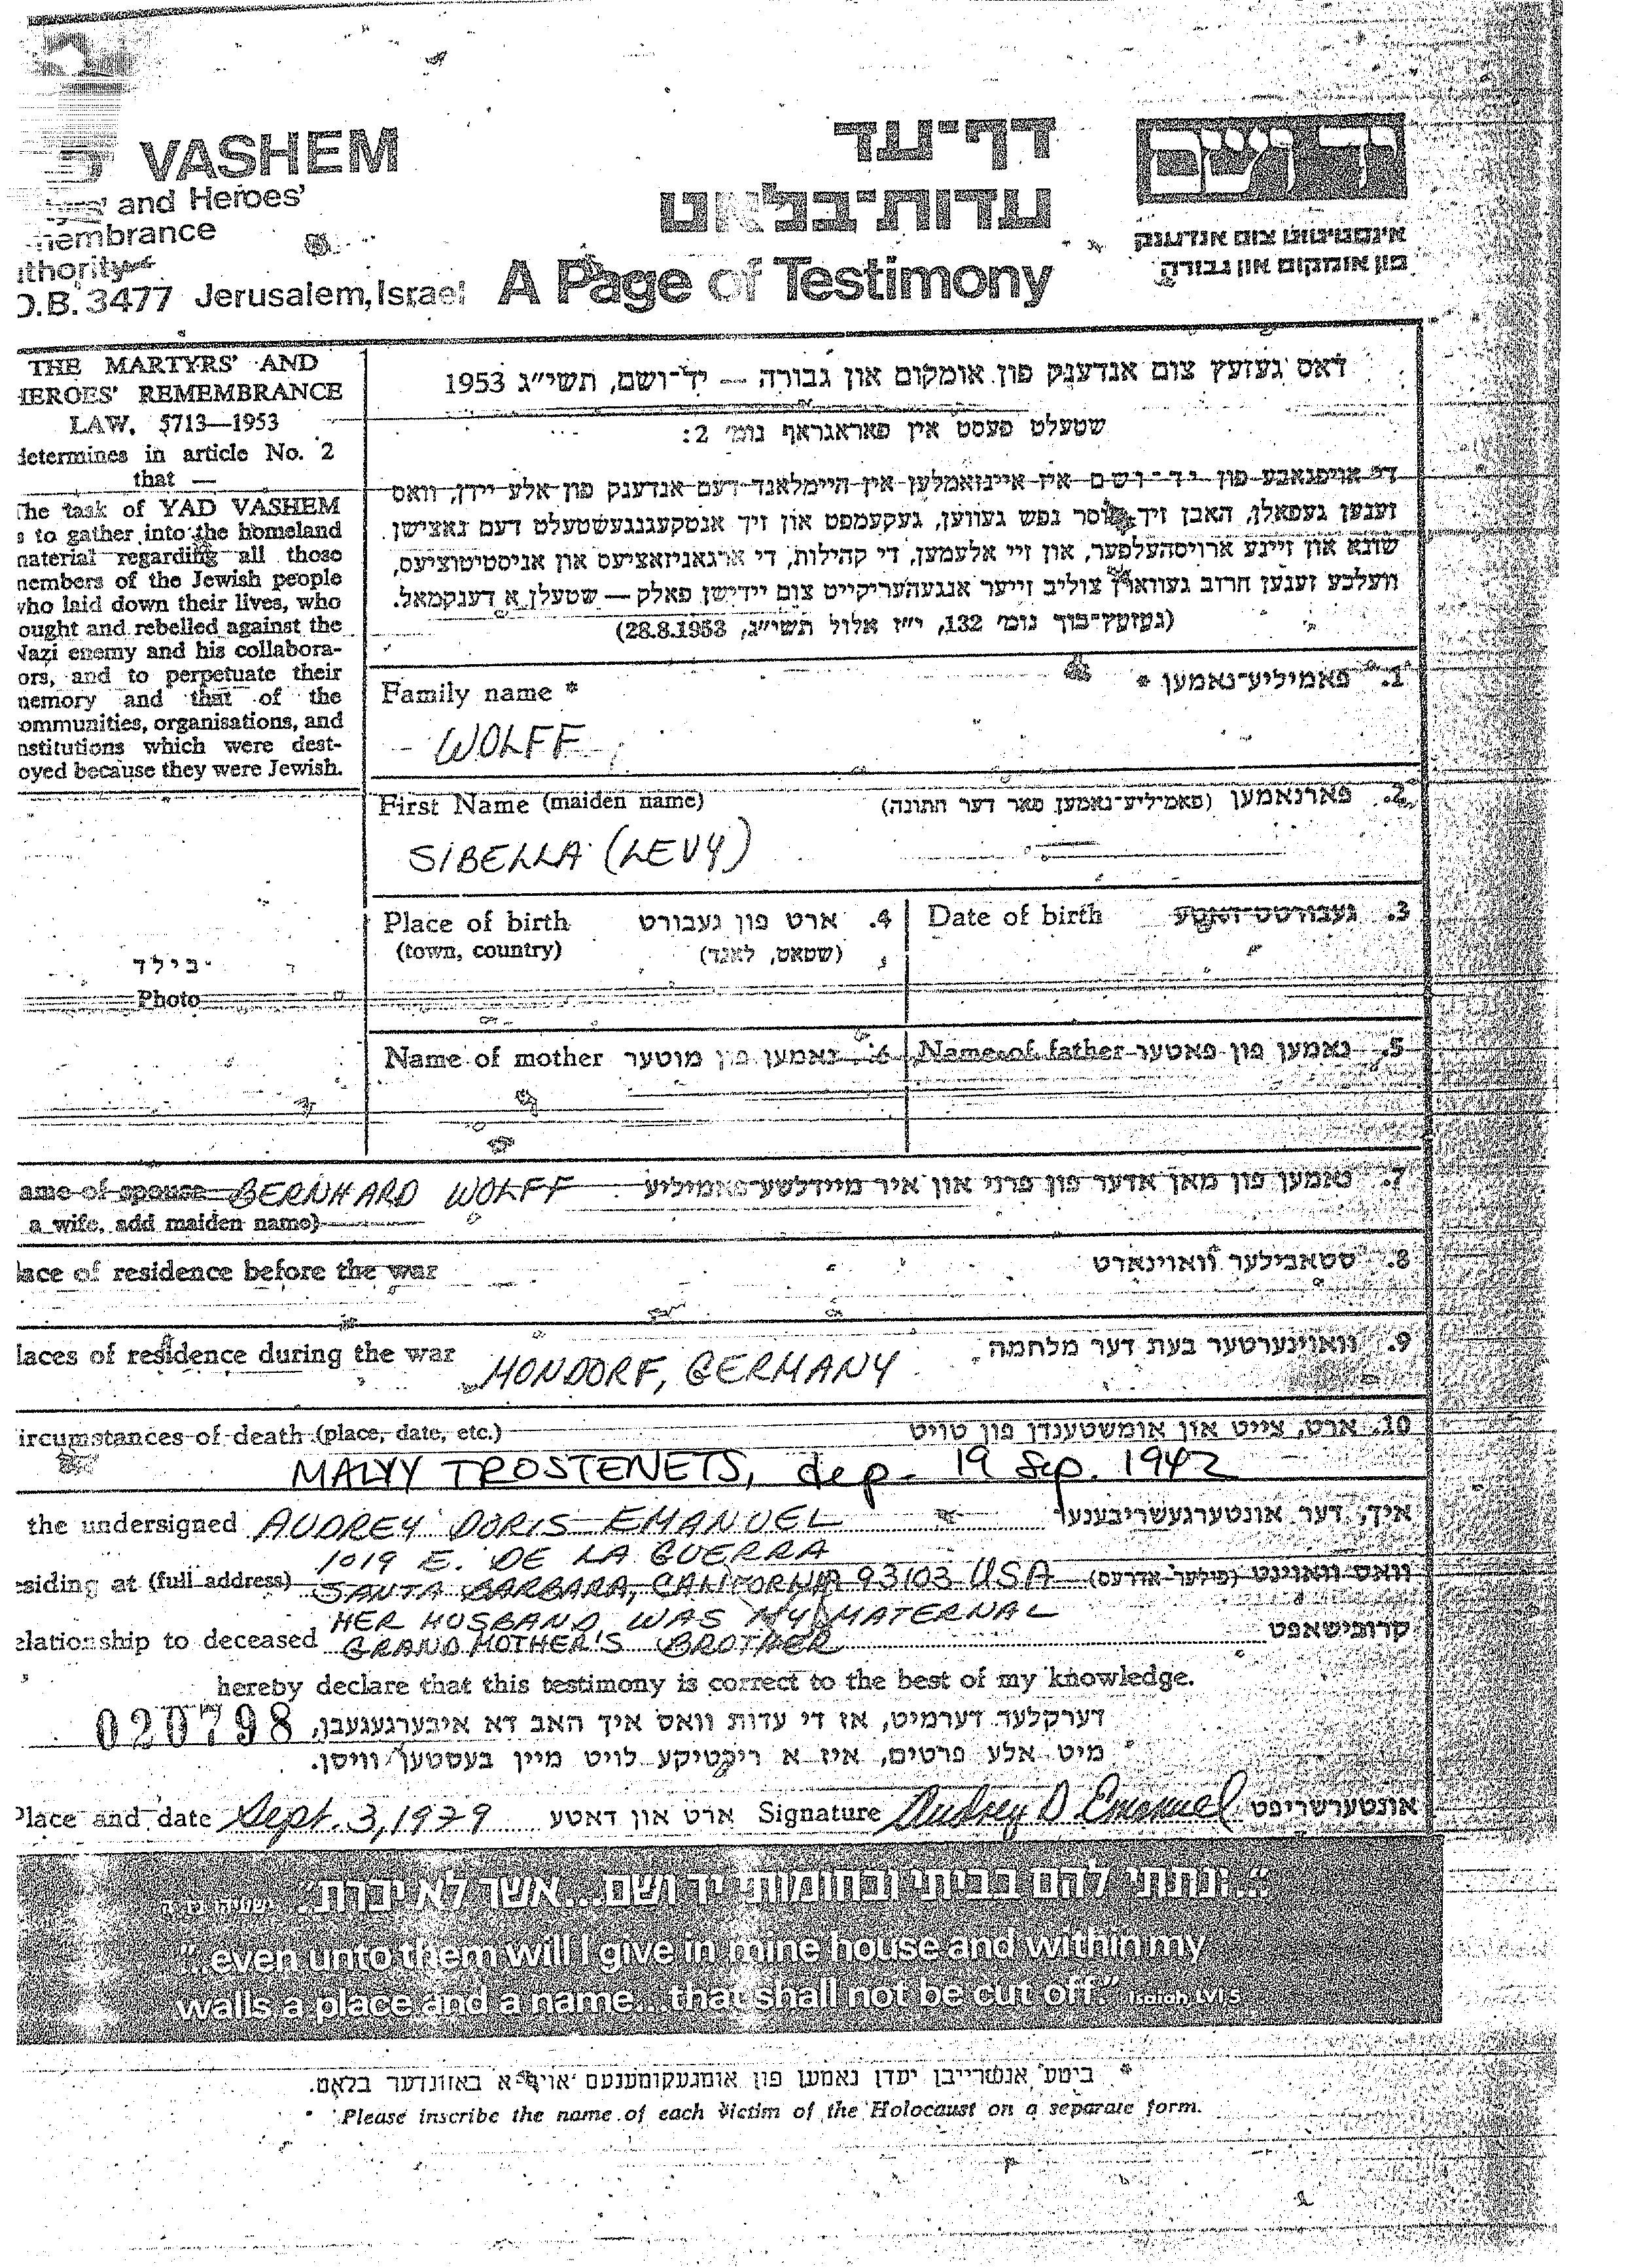 VASHEM
and Heroes'
membrance
thority
O.B. 3477 Jerusalem, Israel
דף־עד
עדות־בלאט
A Page of Testimony
יד ושם
אינסטיטוט צום אנדענק
פון אומקום און גבורה
THE MARTYRS' AND
HEROES' REMEMBRANCE
LAW, 5713—1953
determines in article No. 2
that —
The task of YAD VASHEM
s to gather into the homeland
material regarding all those
members of the Jewish people
who laid down their lives, who
ought and rebelled against the
Nazi enemy and his collabora-
ors, and to perpetuate their
memory and that of the
ommunities, organisations, and
nstitutions which were dest-
oyed because they were Jewish.
דאס געזעץ צום אנדענק פון אומקום און גבורה — יד־ושם, תשי״ג 1953
שטעלט פעסט אין פאראגראף נומ׳ 2:
די אויפגאבע פון יד־ושם איז איינזאמלען אין היימלאנד דעם אנדענק פון אלע יידן, וואס
זענען געפאלן, האבן זיך מוסר נפש געווען, געקעמפט און זיך אנטקעגנגעשטעלט דעם נאצישן
שונא און זיינע ארויסהעלפער, און זיי אלעמען, די קהילות, די ארגאניזאציעס און אינסטיטוציעס,
וועלכע זענען חרוב געווארן צוליב זייער אנגעהעריקייט צום יידישן פאלק — שטעלן א דענקמאל.
(געזעץ־בוך נומ׳ 132, י״ז אלול תשי״ג, 28.8.1953)
Family name * 1. פאמיליע־נאמען *
WOLFF
First Name (maiden name) 2. פארנאמען (פאמיליע־נאמען פאר דער חתונה)
SIBELLA (LEVY)
Place of birth 4. ארט פון געבורט
(town, country) (שטאט, לאנד)
Date of birth 3. געבורטס־דאטע
בילד
Photo
Name of mother 6. נאמען פון מוטער
Name of father 5. נאמען פון פאטער
ame of spouse BERNHARD WOLFF 7. נאמען פון מאן אדער פון פרוי און איר מיידלשע־פאמיליע
a wife, add maiden name)
lace of residence before the war 8. סטאבילער וואוינארט
laces of residence during the war 9. וואוינערטער בעת דער מלחמה
MONDORF, GERMANY
ircumstances of death (place, date, etc.) 10. ארט, צייט און אומשטענדן פון טויט
MALYY TROSTENETS, dep. 19 Sep. 1942
the undersigned AUDREY DORIS EMANUEL איך, דער אונטערגעשריבענער
1019 E. DE LA GUERRA
esiding at (full address) SANTA BARBARA, CALIFORNIA 93103 USA וואס וואוינט (פולער אדרעס)
HER HUSBAND WAS MY MATERNAL
elationship to deceased GRANDMOTHER'S BROTHER קרובישאפט
hereby declare that this testimony is correct to the best of my knowledge.
דערקלער דערמיט, אז די עדות וואס איך האב דא איבערגעגעבן,
020798
מיט אלע פרטים, איז א ריכטיקע לויט מיין בעסטען וויסן.
Place and date Sept. 3, 1979 ארט און דאטע Signature Audrey D Emanuel אונטערשריפט
"...ונתתי להם בביתי ובחומותי יד ושם...אשר לא יכרת." ישעיהו נו, ה
"...even unto them will I give in mine house and within my
walls a place and a name...that shall not be cut off." Isaiah LVI, 5
* ביטע אנשרייבן יעדן נאמען פון אומגעקומענעם אויף א באזונדער בלאט.
* Please inscribe the name of each victim of the Holocaust on a separate form.